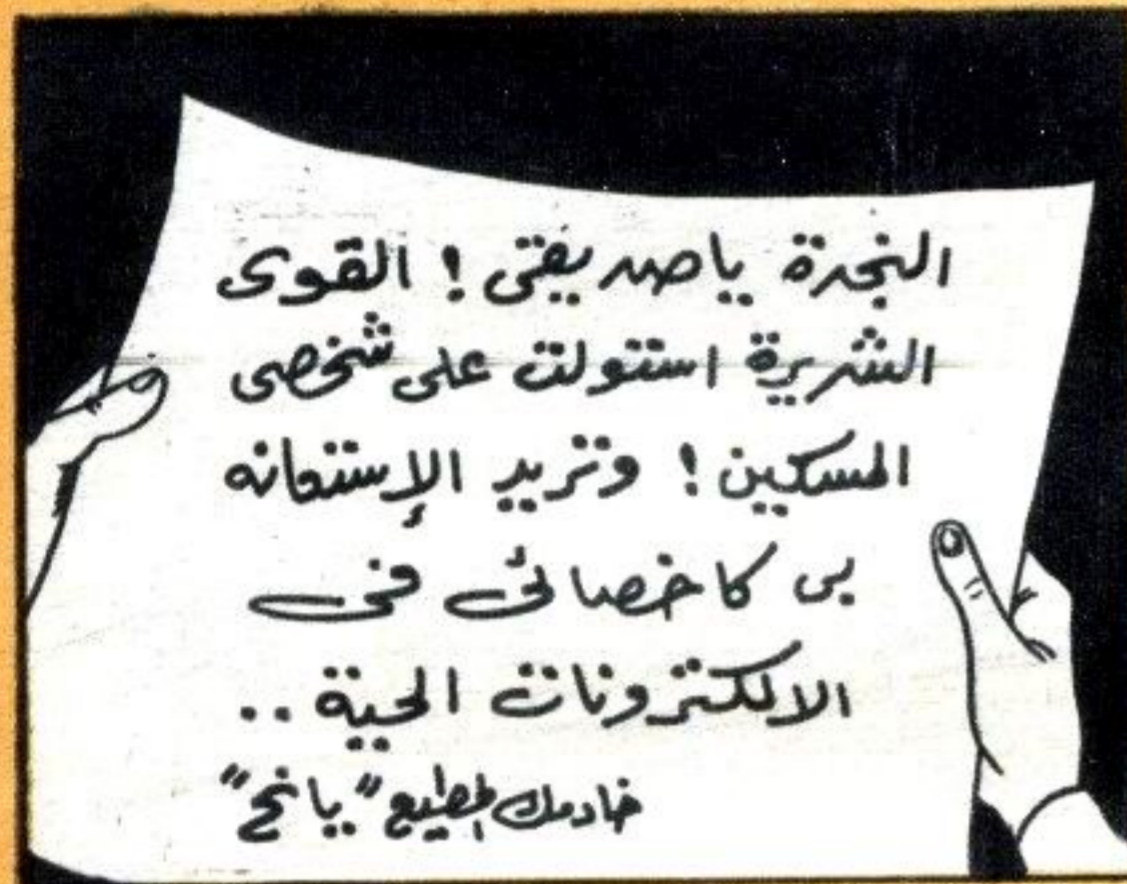 النجدة ياصديقتى ! القوى
الشريرة استولت على شخصى
المسكين ! وتريد الإستعانه
بى كاخصائى فى
الالكترونات الحية ..
خادمك المطيع "يانج"